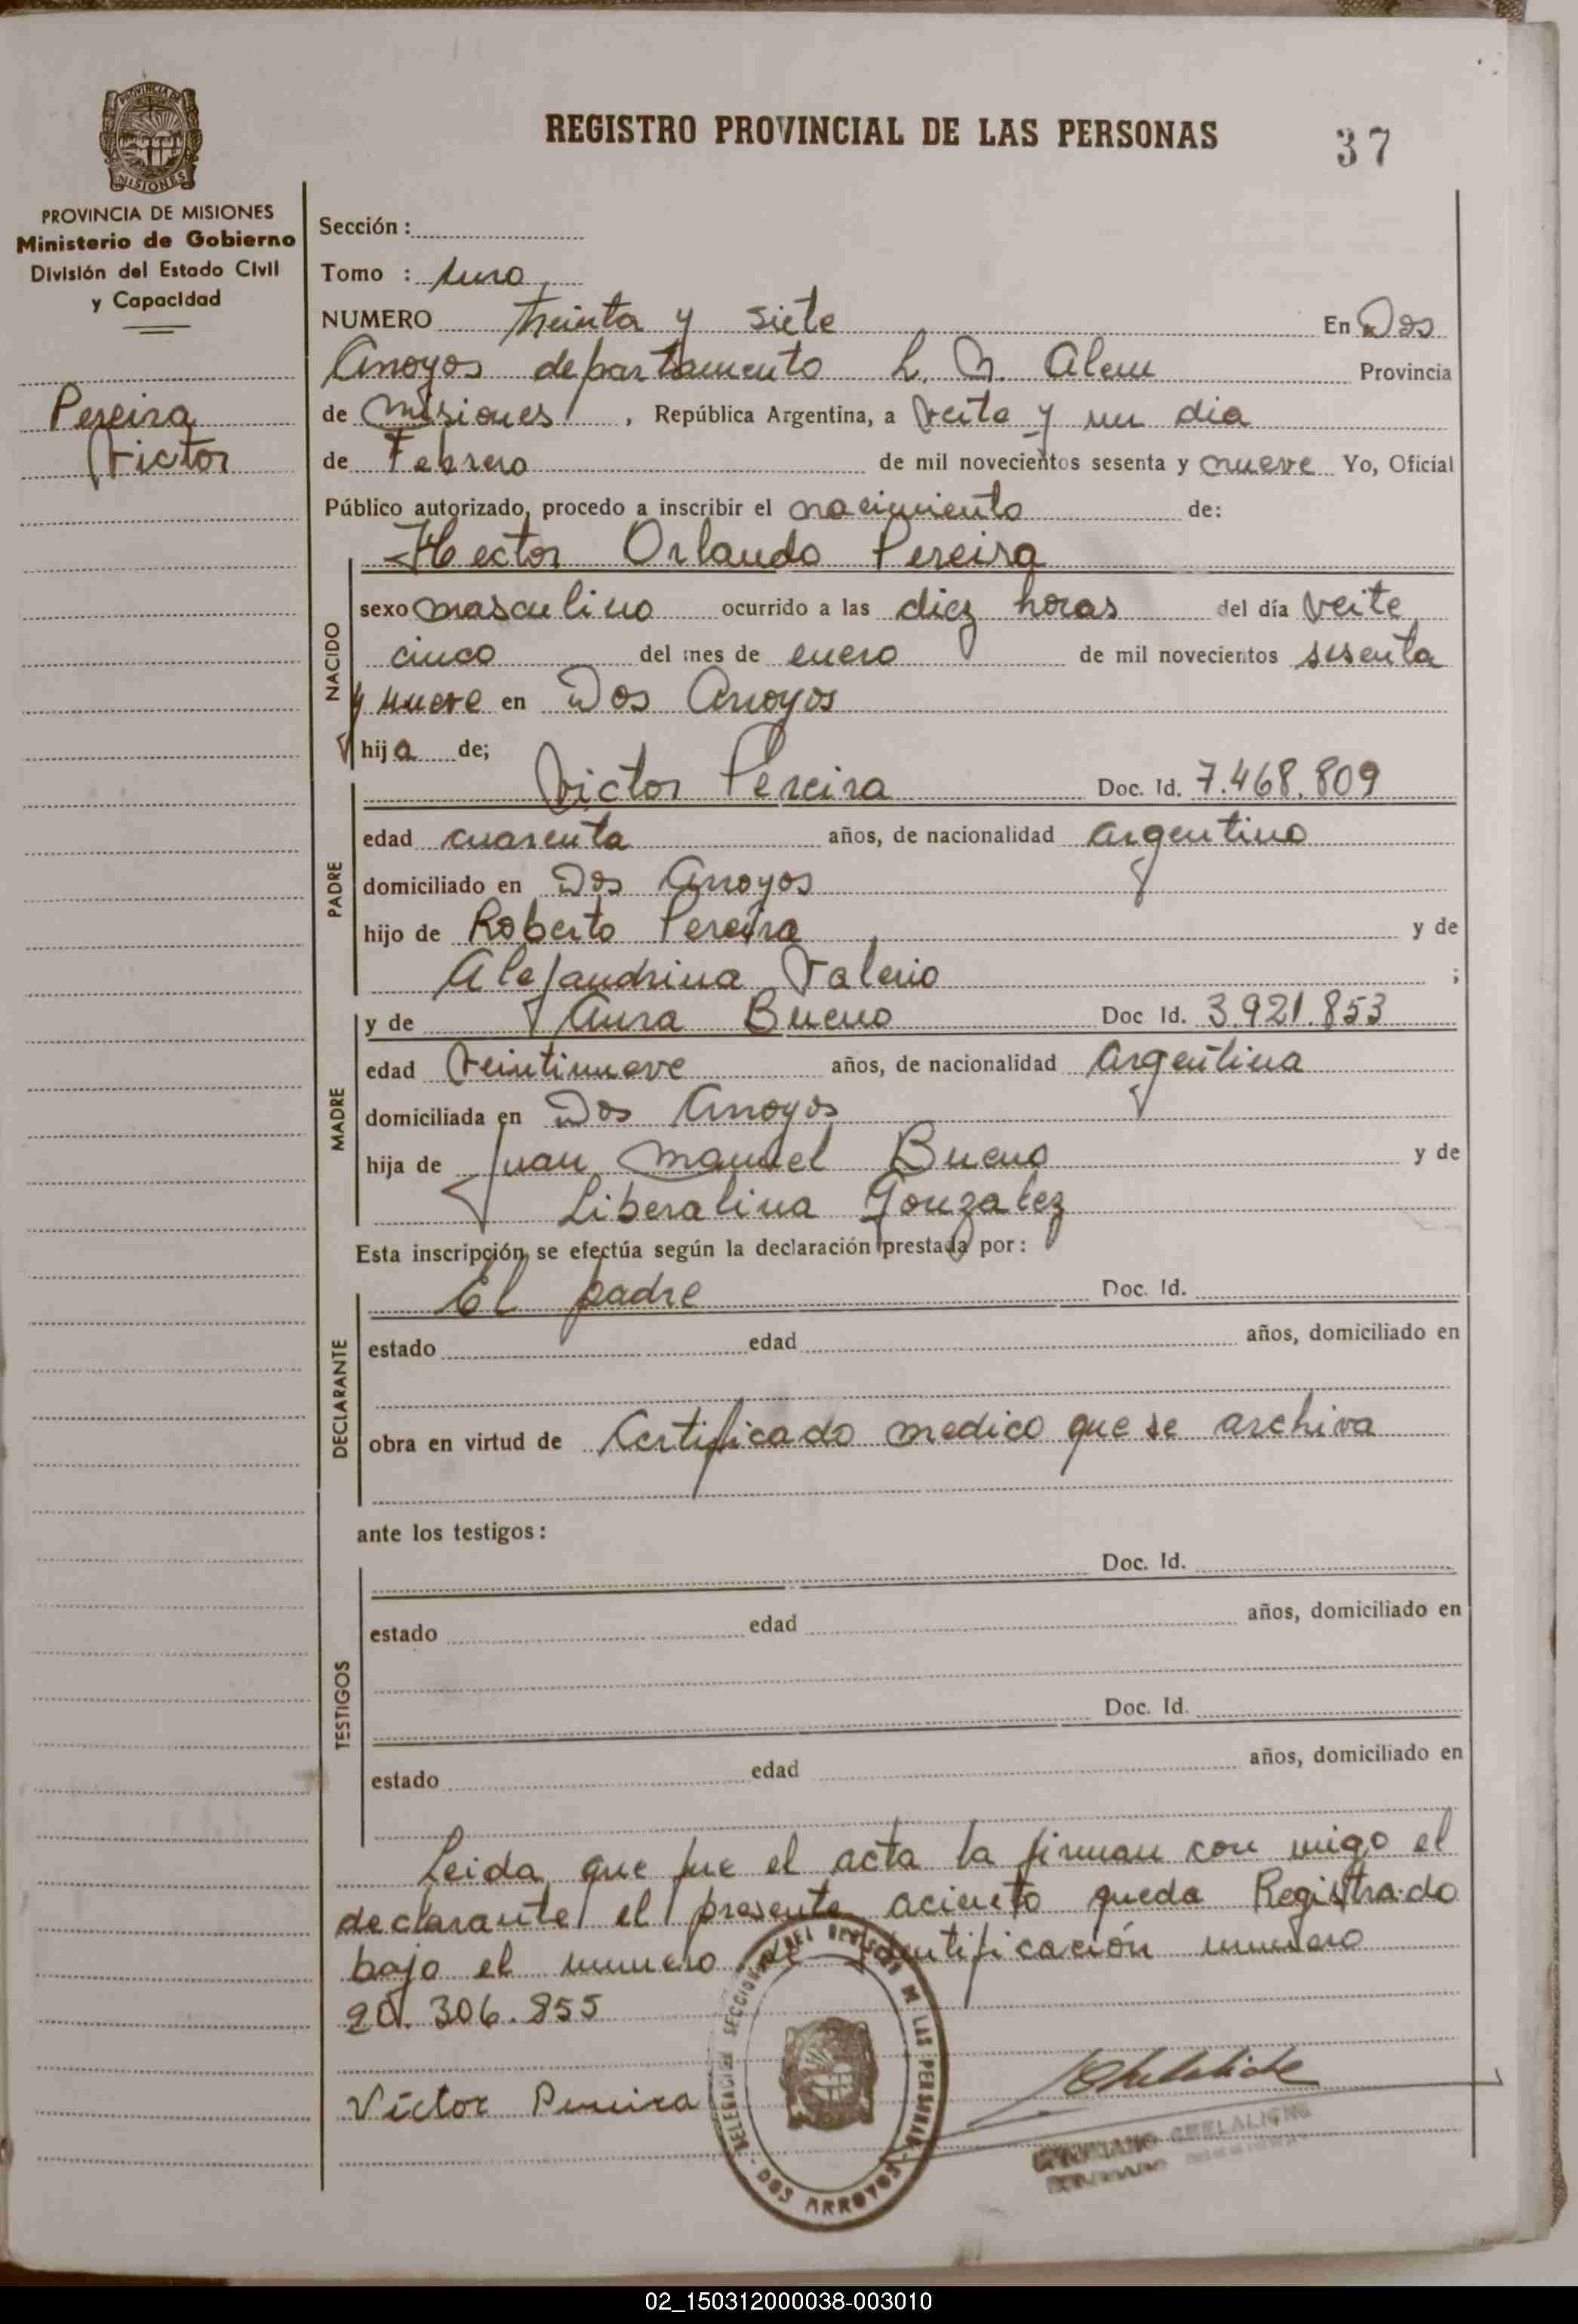 REGISTRO PROVINCIAL DE LAS PERSONAS
37
PROVINCIA DE
MISIONES
PROVINCIA DE MISIONES
Ministerio de Gobierno
División del Estado Civil
y Capacidad
Pereira
Victor
Sección :
Tomo : uno
NUMERO treinta y siete En Dos
Arroyos departamento L. N. Alem Provincia
de Misiones , República Argentina, a veite y un dia
de Febrero de mil novecientos sesenta y nueve Yo, Oficial
Público autorizado, procedo a inscribir el nacimiento de:
Hector Orlando Pereira
NACIDO
sexo masculino ocurrido a las diez horas del día veite
cinco del mes de enero de mil novecientos sesenta
y nueve en Dos Arroyos
hija de;
PADRE
Victor Pereira Doc. Id. 7.468.809
edad cuarenta años, de nacionalidad argentino
domiciliado en Dos Arroyos
hijo de Roberto Pereira y de
Alejandrina Valerio ;
MADRE
y de Aura Bueno Doc Id. 3.921.853
edad veintinueve años, de nacionalidad argentina
domiciliada en Dos Arroyos
hija de Juan Manuel Bueno y de
Liberalina Gonzalez
Esta inscripción se efectúa según la declaración prestada por:
DECLARANTE
El padre Doc. Id.
estado edad años, domiciliado en
obra en virtud de Certificado medico que se archiva
ante los testigos:
TESTIGOS
Doc. Id.
estado edad años, domiciliado en
Doc. Id.
estado edad años, domiciliado en
Leida que fue el acta la firman con migo el
declarante el presente aciento queda Registrado
bajo el numero de identificación numero
20.306.855
Victor Pereira
DOS ARROYOS
CHELALICHE
02_150312000038-003010